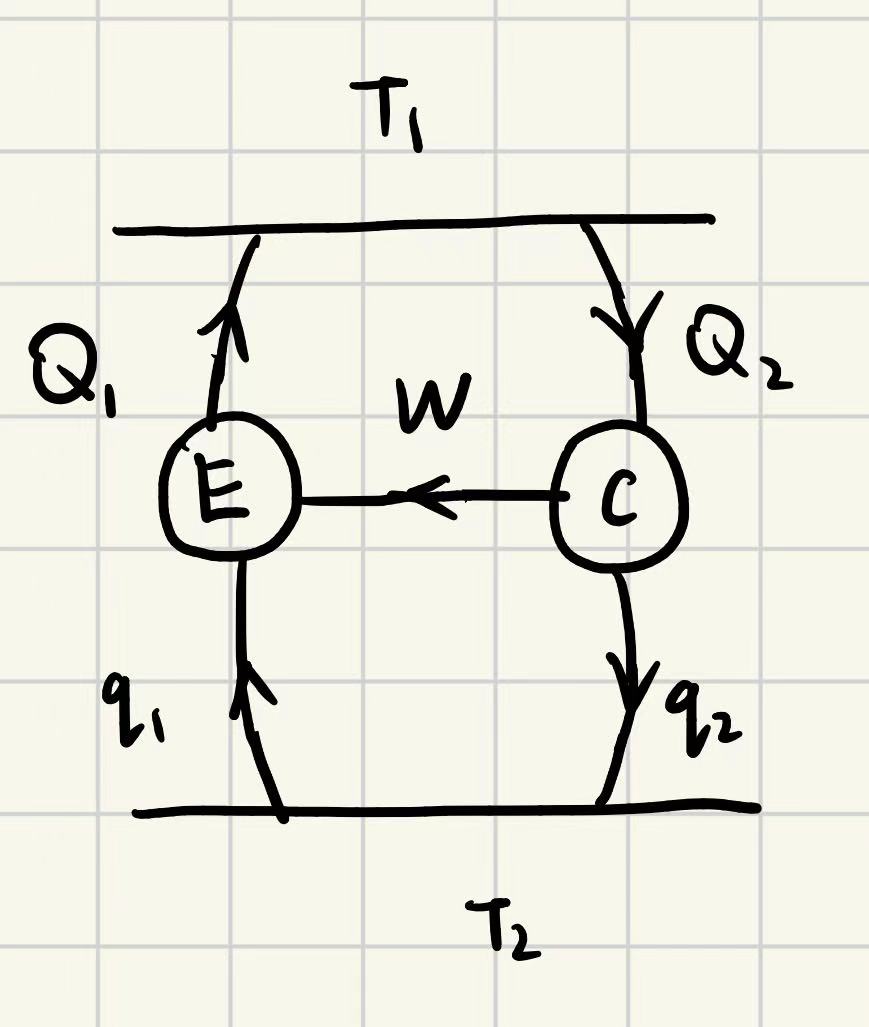 T₁
Q₁
Q₂
W
E
C
q₁
q₂
T₂